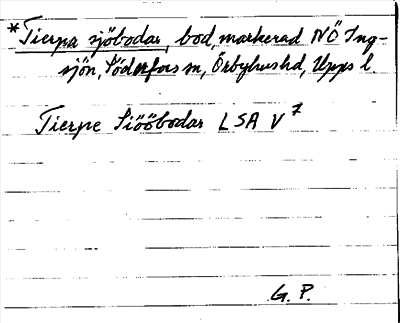 *Tierpa sjöbodar, bod, markerad NÖ Ing-
sjön, Söderfors sn, Örbyhus hd, Upps l.
Tierpe Siööbodar LSA V 7
G. P.